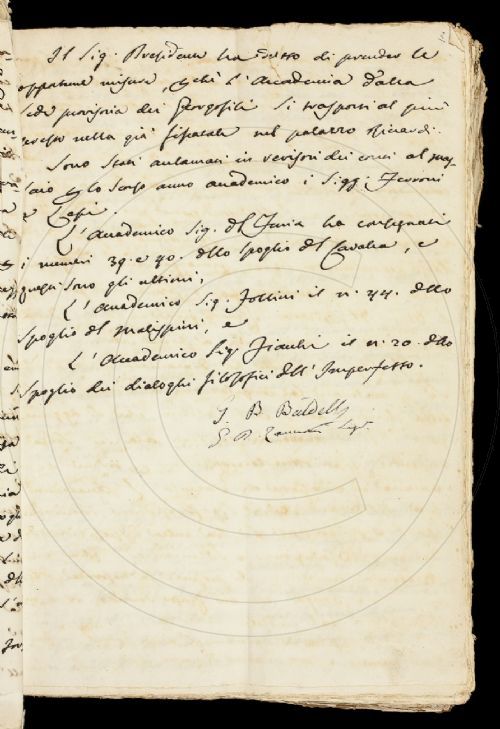 Il Sig. Presidente ha detto di prender le
opportune misure, che l'Accademia dalla
sede provisoria dei Georgofili si trasporti al più
presto nella già fissatale nel palazzo Ricardi.
Sono stati acclamati in revisori dei conti al mas-
saio lo scorso anno accademico i Sigg. Ferroni
e Lessi.
L'Accademico Sig. del Furia ha consegnati
i numeri 39. e 40. dello spoglio del Cavalca, e
questi sono gli ultimi;
L'Accademico Sig. Follini il n. 44. dello
spoglio del Malispini, e
L'Accademico Sig. Fiacchi il n. 20. dello
spoglio dei dialoghi filosofici dell'Imperfetto.
G. B. Baldelli
G. B. Zannoni Seg.